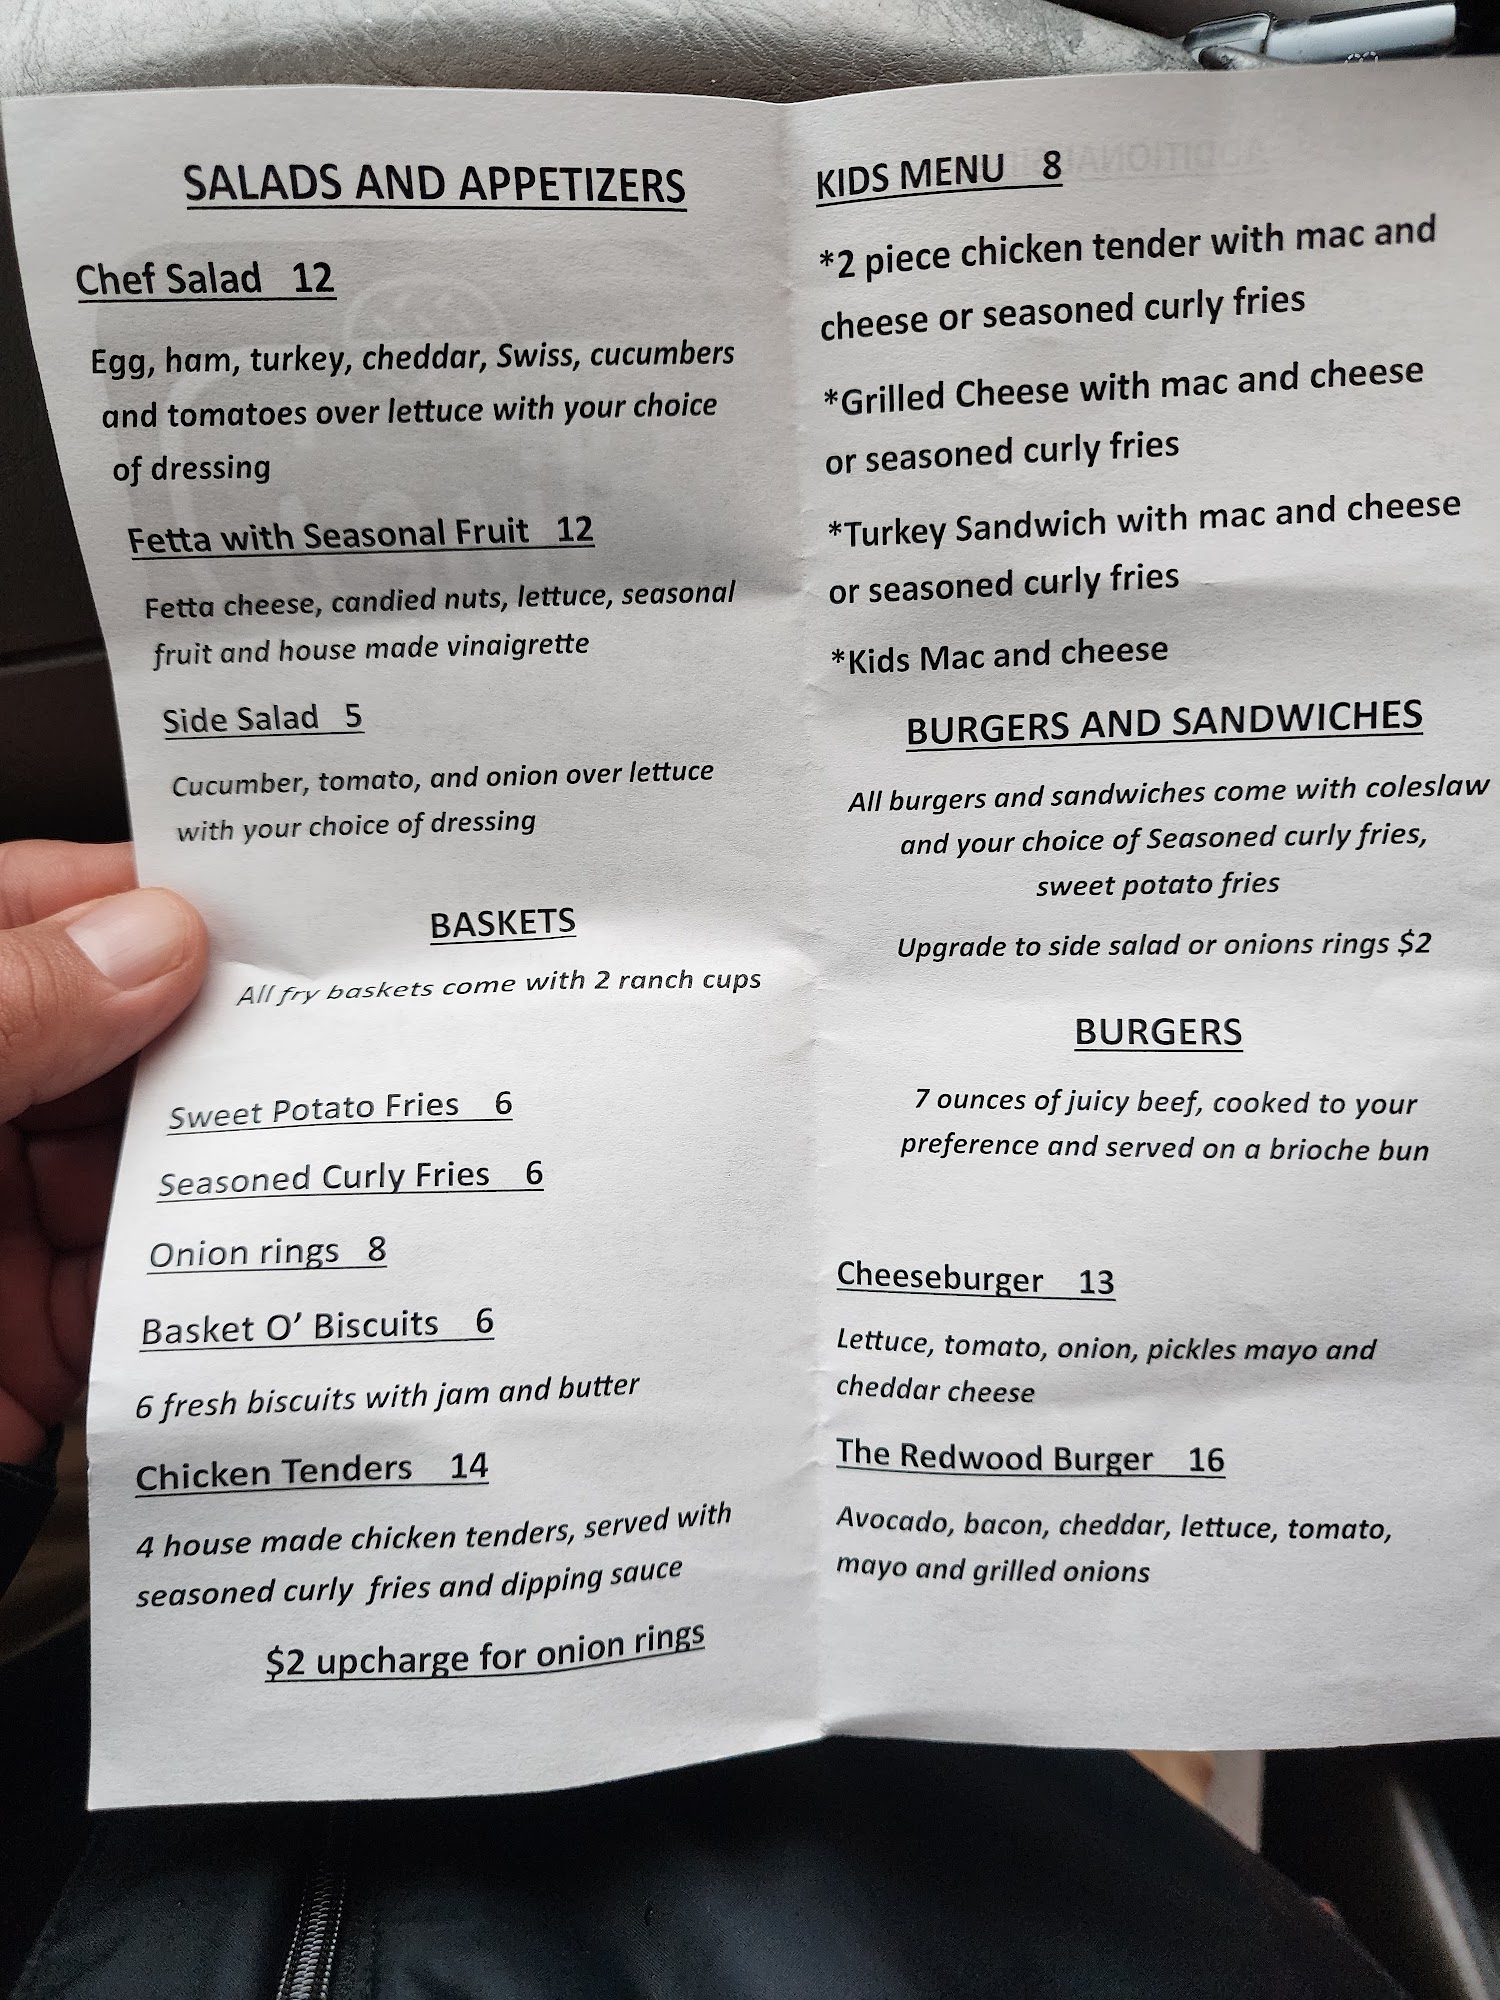 SALADS AND APPETIZERS
Chef Salad 12
Egg, ham, turkey, cheddar, Swiss, cucumbers
and tomatoes over lettuce with your choice
of dressing
Fetta with Seasonal Fruit 12
Fetta cheese, candied nuts, lettuce, seasonal
fruit and house made vinaigrette
Side Salad 5
Cucumber, tomato, and onion over lettuce
with your choice of dressing
BASKETS
All fry baskets come with 2 ranch cups
Sweet Potato Fries 6
Seasoned Curly Fries 6
Onion rings 8
Basket O’ Biscuits 6
6 fresh biscuits with jam and butter
Chicken Tenders 14
4 house made chicken tenders, served with
seasoned curly fries and dipping sauce
$2 upcharge for onion rings
KIDS MENU 8
*2 piece chicken tender with mac and
cheese or seasoned curly fries
*Grilled Cheese with mac and cheese
or seasoned curly fries
*Turkey Sandwich with mac and cheese
or seasoned curly fries
*Kids Mac and cheese
BURGERS AND SANDWICHES
All burgers and sandwiches come with coleslaw
and your choice of Seasoned curly fries,
sweet potato fries
Upgrade to side salad or onions rings $2
BURGERS
7 ounces of juicy beef, cooked to your
preference and served on a brioche bun
Cheeseburger 13
Lettuce, tomato, onion, pickles mayo and
cheddar cheese
The Redwood Burger 16
Avocado, bacon, cheddar, lettuce, tomato,
mayo and grilled onions